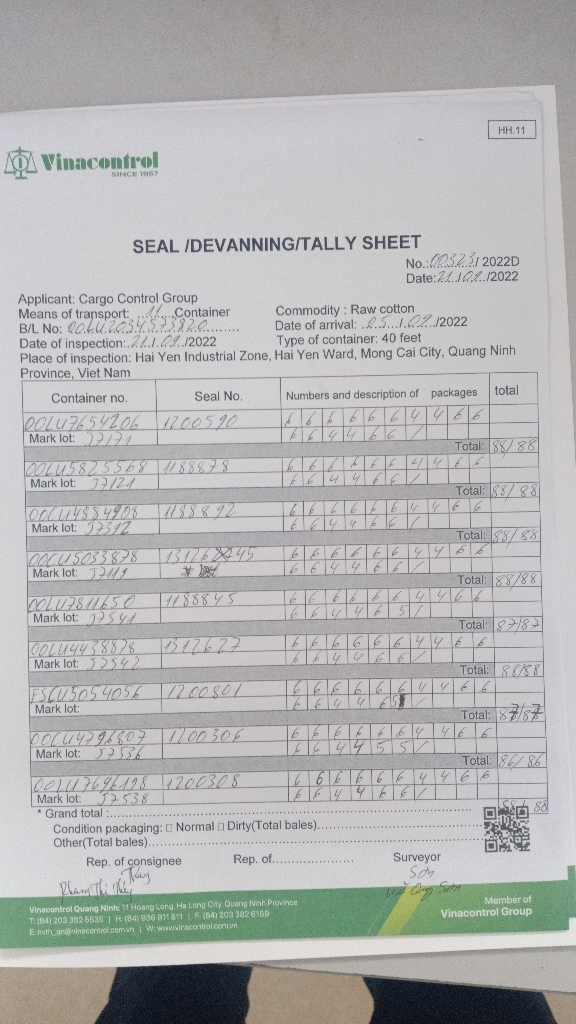 HH.11
Vinacontrol
SINCE 1957
SEAL /DEVANNING/TALLY SHEET
No.:00323/ 2022D
Date:21/09/2022
Applicant: Cargo Control Group
Means of transport: 11 Container
Commodity : Raw cotton
B/L No: OOLU2034573820
Date of arrival: 05/09/2022
Date of inspection: 21/09/2022
Type of container: 40 feet
Place of inspection: Hai Yen Industrial Zone, Hai Yen Ward, Mong Cai City, Quang Ninh
Province, Viet Nam
Container no. Seal No. Numbers and description of packages total
OOLU7654206 1200590 6 6 6 6 6 6 4 4 6 6
Mark lot: 37171 6 6 4 4 6 6 /
Total: 88/88
OOLU5825568 1188878 6 6 6 6 6 6 4 4 6 6
Mark lot: 37121 6 6 4 4 6 6 /
Total: 88/88
OOCU4884908 1188892 6 6 6 6 6 6 4 4 6 6
Mark lot: 37392 6 6 4 4 6 6 /
Total: 88/88
OOCU5033878 13126 45 6 6 6 6 6 6 4 4 6 6
Mark lot: 37119 6 6 4 4 6 6 /
Total: 88/88
OOLU7811650 1188845 6 6 6 6 6 6 4 4 6 6
Mark lot: 37541 6 6 4 4 6 5 /
Total: 87/87
OOLU4438878 1312627 6 6 6 6 6 6 4 4 6 6
Mark lot: 37542 6 6 4 4 6 6 /
Total: 88/88
FSCU5054056 1200801 6 6 6 6 6 6 4 4 6 6
Mark lot: 6 6 4 4 6 5
Total: 87/87
OOCU4796807 1200306 6 6 6 6 6 6 4 4 6 6
Mark lot: 37536 6 6 4 4 5 5 /
Total: 86/86
OOLU7696198 1200308 6 6 6 6 6 6 4 4 6 6
Mark lot: 37538 6 6 4 4 6 6 /
* Grand total : 88/88
Condition packaging: □ Normal □ Dirty(Total bales)
Other(Total bales)
Rep. of consignee Rep. of Surveyor
Thúy Sơn
Phạm Thị Thúy
Vinacontrol Quang Ninh: 11 Hoang Long, Ha Long City, Quang Ninh Province
Member of
T: (84) 203 382 5535 | H: (84) 936 911 811 | F: (84) 203 382 6169
Vinacontrol Group
E: nvth_qn@vinacontrol.com.vn | W: www.vinacontrol.com.vn